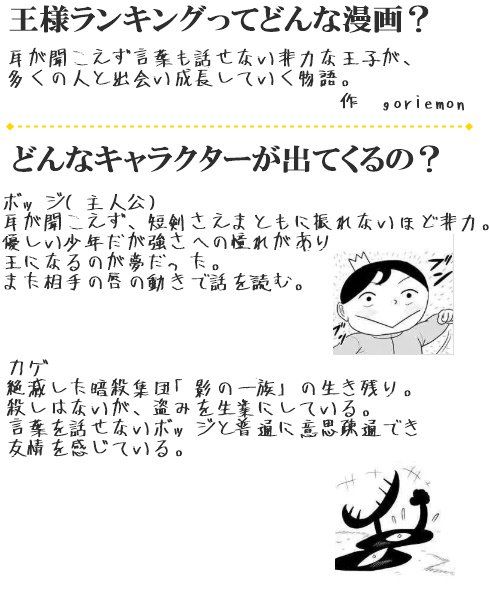 王様ランキングってどんな漫画？
耳が聞こえず言葉も話せない非力な王子が、
多くの人と出会い成長していく物語。
作 goriemon
どんなキャラクターが出てくるの？
ボッジ(主人公)
耳が聞こえず、短剣さえまともに振れないほど非力。
優しい少年だが強さへの憧れがあり
王になるのが夢だった。
また相手の唇の動きで話を読む。
ブン
ブン
カゲ
絶滅した暗殺集団「影の一族」の生き残り。
殺しはないが、盗みを生業にしている。
言葉を話せないボッジと普通に意思疎通でき
友情を感じている。